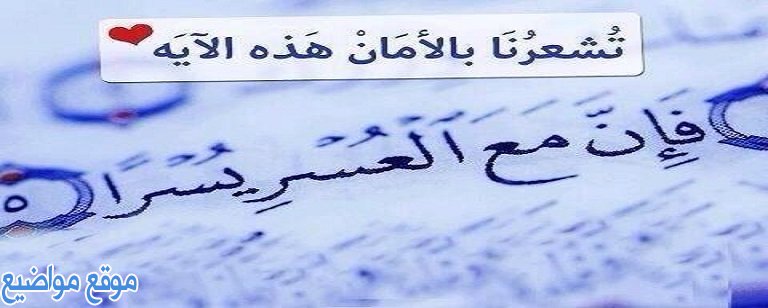 تُشعرُنَا بالأمَانْ هَذه الآيَه
فَإِنَّ مَعَ ٱلْعُسْرِ يُسْرًا ٥
موقع مواضيع